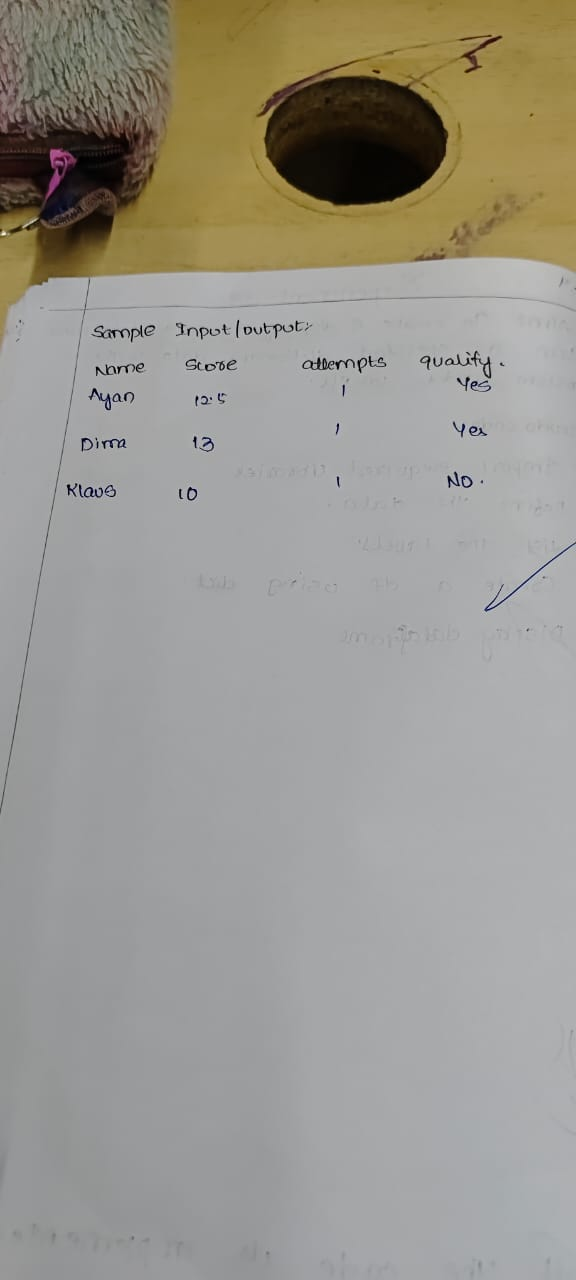 Sample Input/output:-
Name Score attempts qualify.
Ayan 12.5 1 Yes
Dima 13 1 Yes
Klaus 10 1 No.